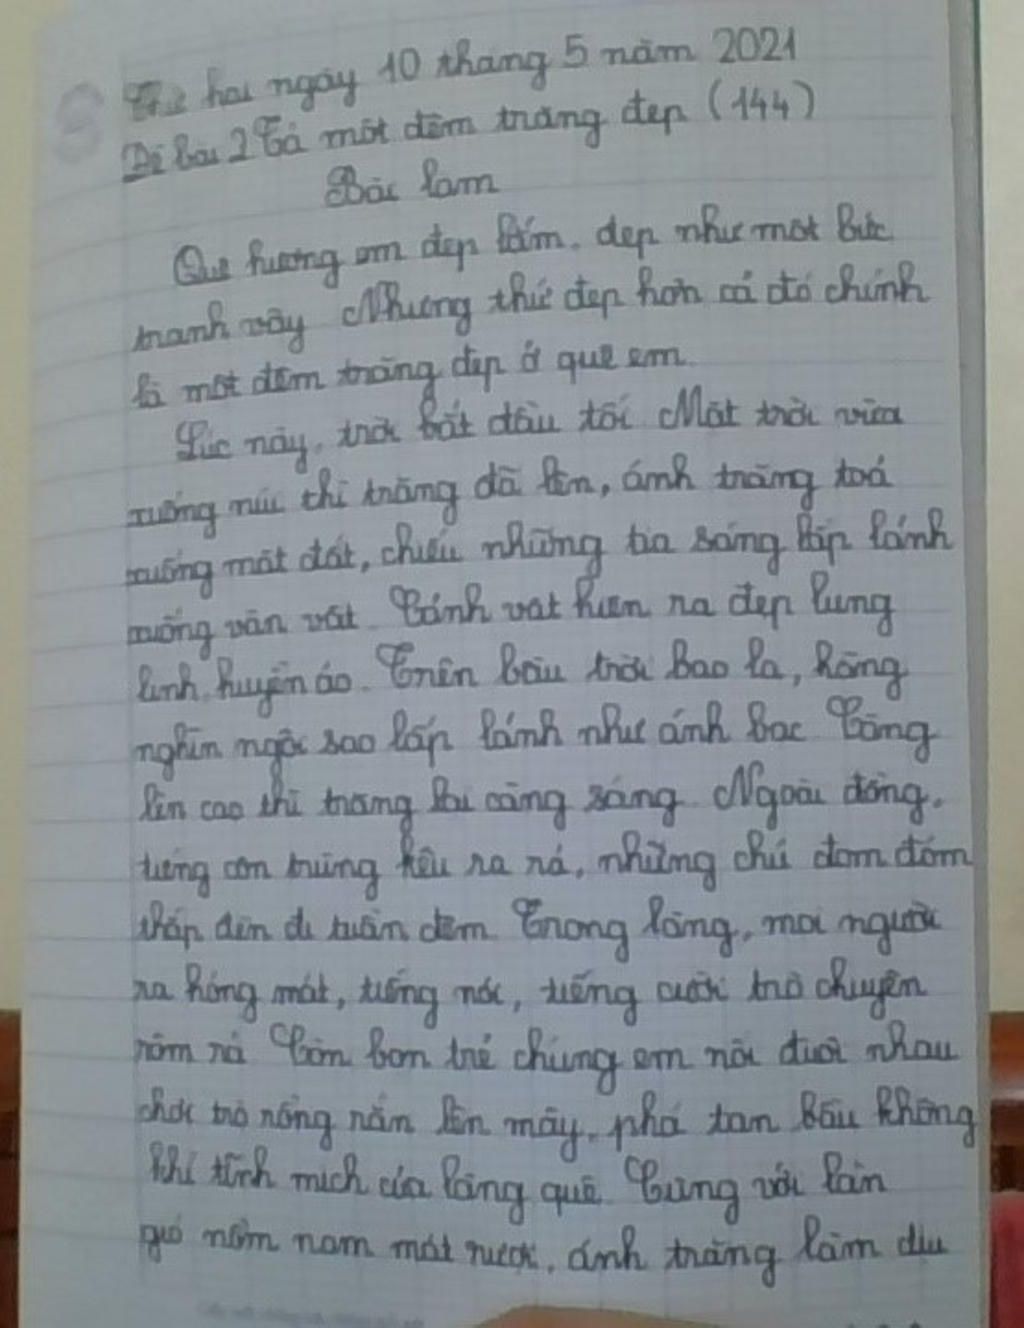 Thứ hai ngày 10 tháng 5 năm 2021
Đề bài 2 Tả một đêm trăng đẹp (144)
Bài làm
Quê hương em đẹp lắm, đẹp như một bức
tranh vậy Nhưng thứ đẹp hơn cả đó chính
là một đêm trăng đẹp ở quê em.
Lúc này, trời bắt đầu tối Mặt trời vừa
xuống núi thì trăng đã lên, ánh trăng toả
xuống mặt đất, chiếu những tia sáng lấp lánh
xuống vạn vật Cảnh vật hiện ra đẹp lung
linh, huyền ảo. Trên bầu trời bao la, hàng
nghìn ngôi sao lấp lánh như ánh bạc Càng
lên cao thì trăng lại càng sáng Ngoài đồng,
tiếng côn trùng kêu ra rả, những chú đom đóm
thắp đèn đi tuần đêm Trong làng, mọi người
ra hóng mát, tiếng nói, tiếng cười trò chuyện
rôm rả Còn bọn trẻ chúng em nối đuôi nhau
chơi trò rồng rắn lên mây, phá tan bầu không
khí tĩnh mịch của làng quê Cùng với làn
gió nồm nam mát rượi, ánh trăng làm dịu